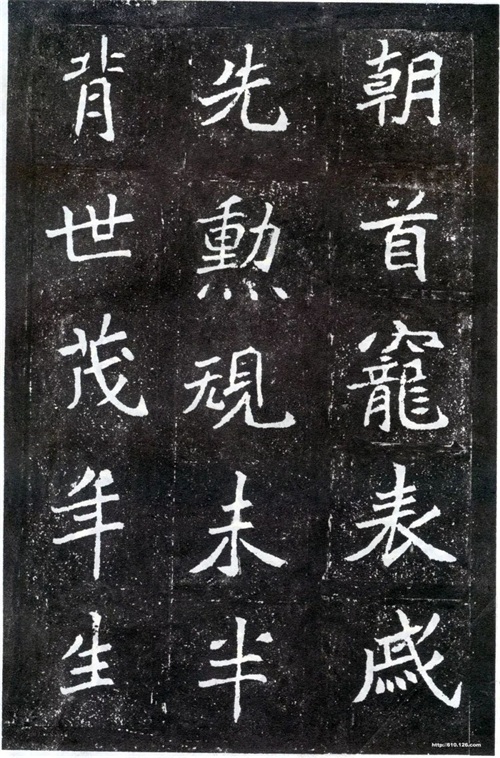 朝首寵表戚
先勳規未半
背世茂年生
http://610.126.com